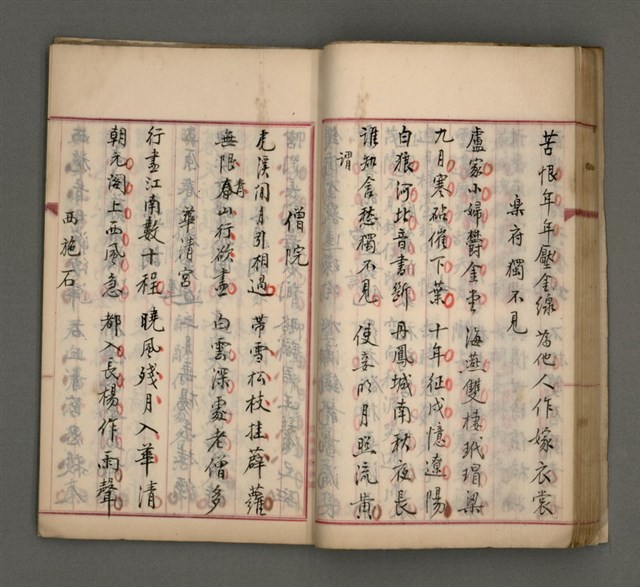 苦恨年年壓金線 為他人作嫁衣裳
樂府獨不見
盧家小婦欝金堂 海燕雙棲玳瑁梁
九月寒砧催下葉 十年征戍憶遼陽
白狼河北音書斷 丹鳳城南秋夜長
誰知含愁獨不見 使妾明月照流黄
謂
僧院
虎溪閒月引相過 帶雪松枝挂薜蘿
無限春山行欲盡 白雲深處老僧多
青
華清宮
行盡江南數十程 曉風殘月入華清
朝元閣上西風急 都入長楊作雨聲
西施石